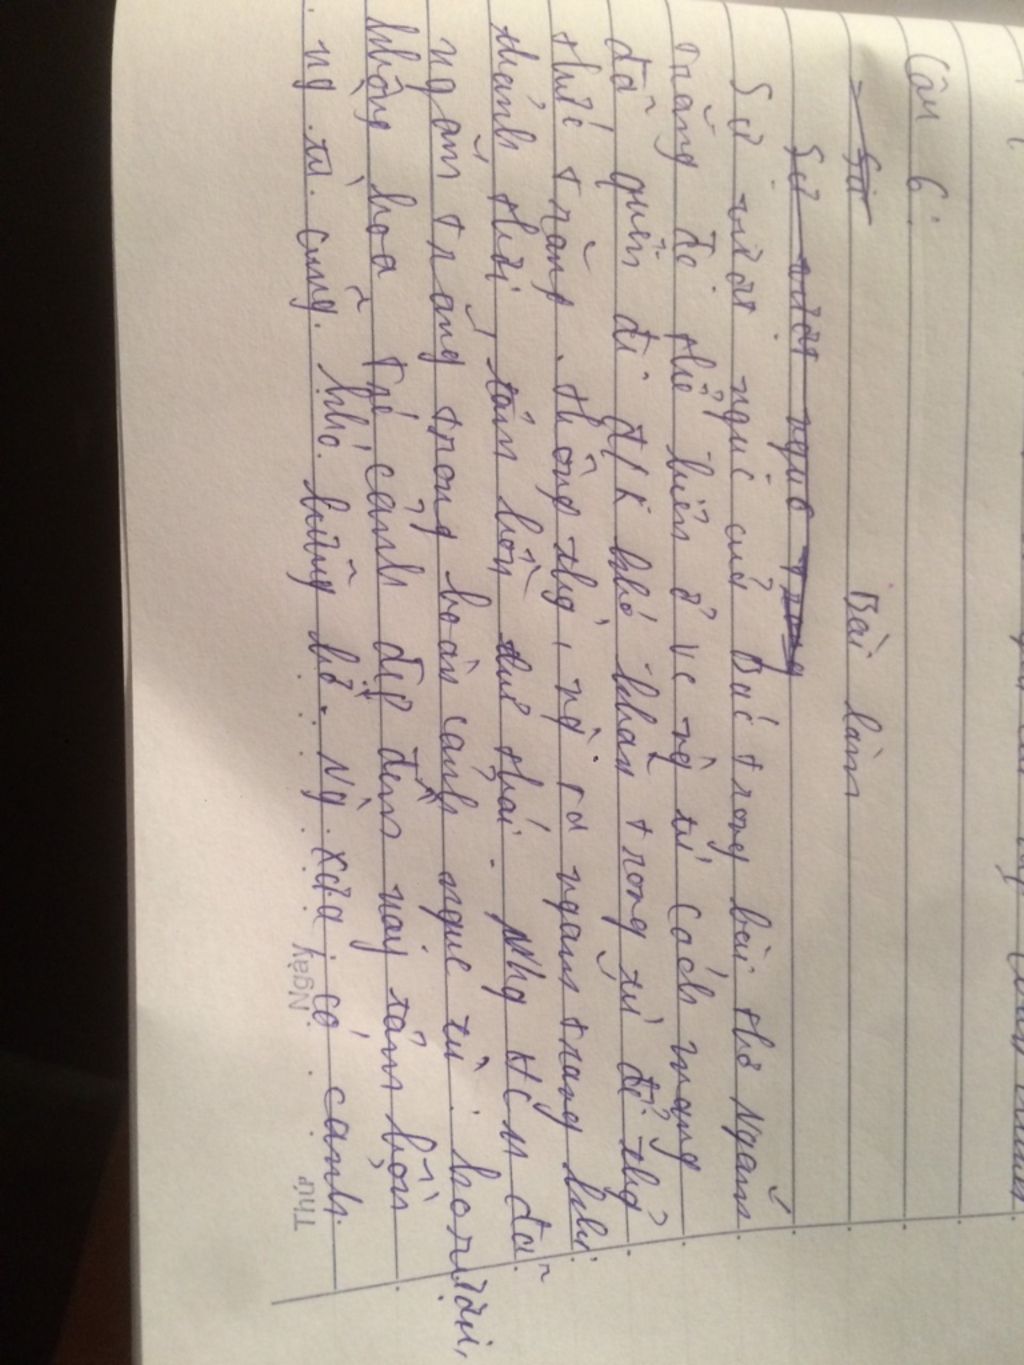 Câu 6:
Bài làm
Sự vượt ngục trong
Sự vượt ngục của Bác trong bài thơ Ngắm
trăng đc thể hiện ở vc ng tù cách mạng
đã quên đi đ/k khó khăn trong tù để thg
thức trăng. thông thg, ng ta ngam trang khi
thảnh thơi, tâm hồn thư thái. Nhg HCM đã
ngắm trăng trong hoàn cảnh ngục tù. hơn,
không hoa trc cảnh đẹp đêm nay tâm hồn
ng tù cung. khó hững hờ. Ng xưa có cảnh
Thứ
Ngày